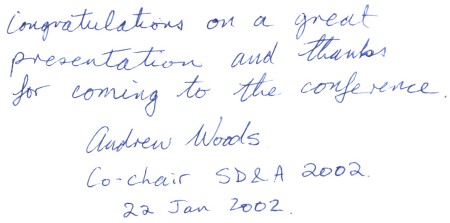 Congratulations on a great
presentation and thanks
for coming to the conference.
Andrew Woods
Co-chair SD&A 2002.
22 Jan 2002.